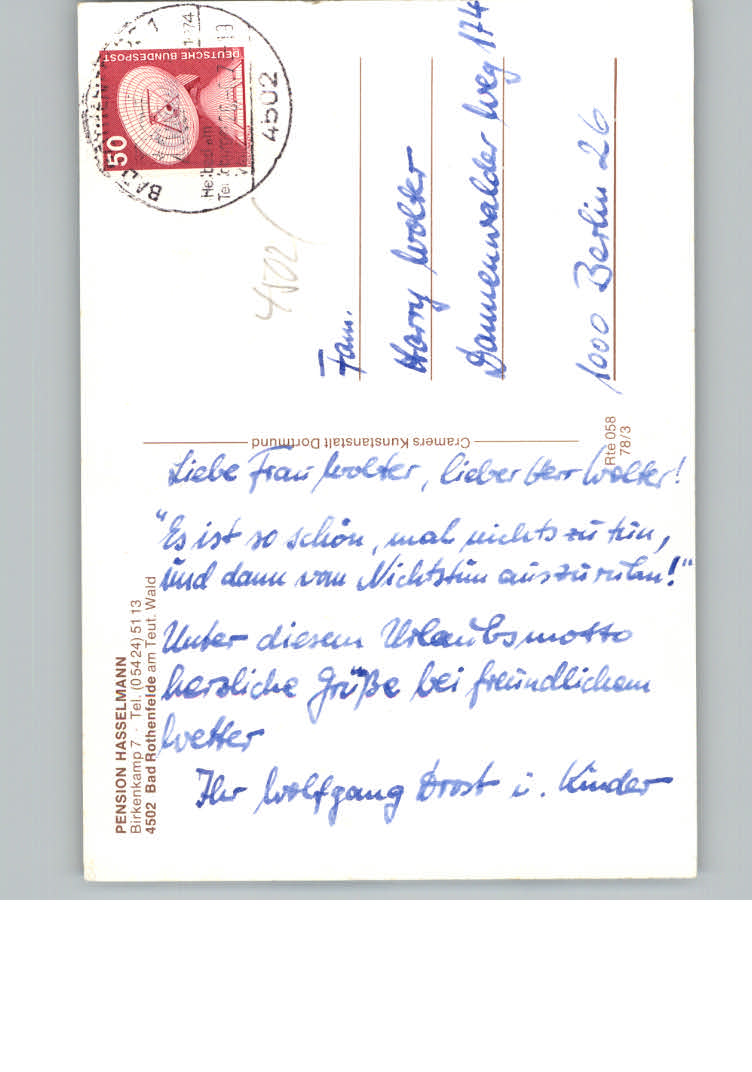 DEUTSCHE BUNDESPOST
50
4502
Heilbad am
4502
Fam.
Harry Wolter
Dannenwalder Weg 174
1000 Berlin 26
Cramers Kunstanstalt Dortmund
Rte 058
78/3
PENSION HASSELMANN
Birkenkamp 7 · Tel. (05424) 5113
4502 Bad Rothenfelde am Teut. Wald
Liebe Frau Wolter, lieber Herr Wolter!
"Es ist so schön, mal nichts zu tun,
und dann vom Nichtstun auszuruhn!"
Unter diesem Urlaubsmotto
herzliche Grüße bei freundlichem
Wetter
Ihr Wolfgang Drost u. Kinder